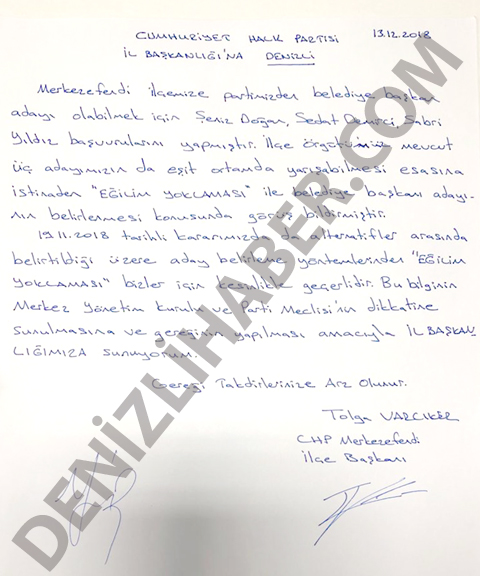 CUMHURİYET HALK PARTİSİ 13.12.2018
İL BAŞKANLIĞI'NA DENİZLİ
Merkezefendi ilçemize partimizden belediye başkan
adayı olabilmek için Şeniz Doğan, Sedat Demirci, Sabri
Yıldız başvurularını yapmıştır. İlçe örgütümüz mevcut
üç adayımızın da eşit ortamda yarışabilmesi esasına
istinaden "EĞİLİM YOKLAMASI" ile belediye başkanı adayı-
nın belirlenmesi konusunda görüş bildirmiştir.
19.11.2018 tarihli kararımızda da alternatifler arasında
belirtildiği üzere aday belirleme yöntemlerinden "EĞİLİM
YOKLAMASI" bizler için kesinlikle geçerlidir. Bu bilginin
Merkez Yönetim kurulu ve Parti Meclisi'nin dikkatine
sunulmasına ve gereğinin yapılması amacıyla İL BAŞKAN
LIĞIMIZA sunuyorum.
Gereği Takdirlerinize Arz Olunur.
Tolga VARCIKER
CHP Merkezefendi
İlçe Başkanı
DENIZLIHABER.COM